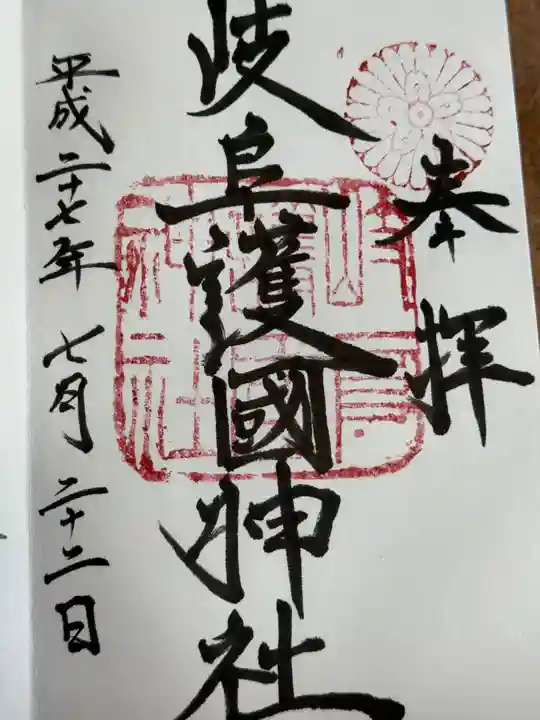 奉拝
岐阜護國神社
平成二十七年七月二十二日